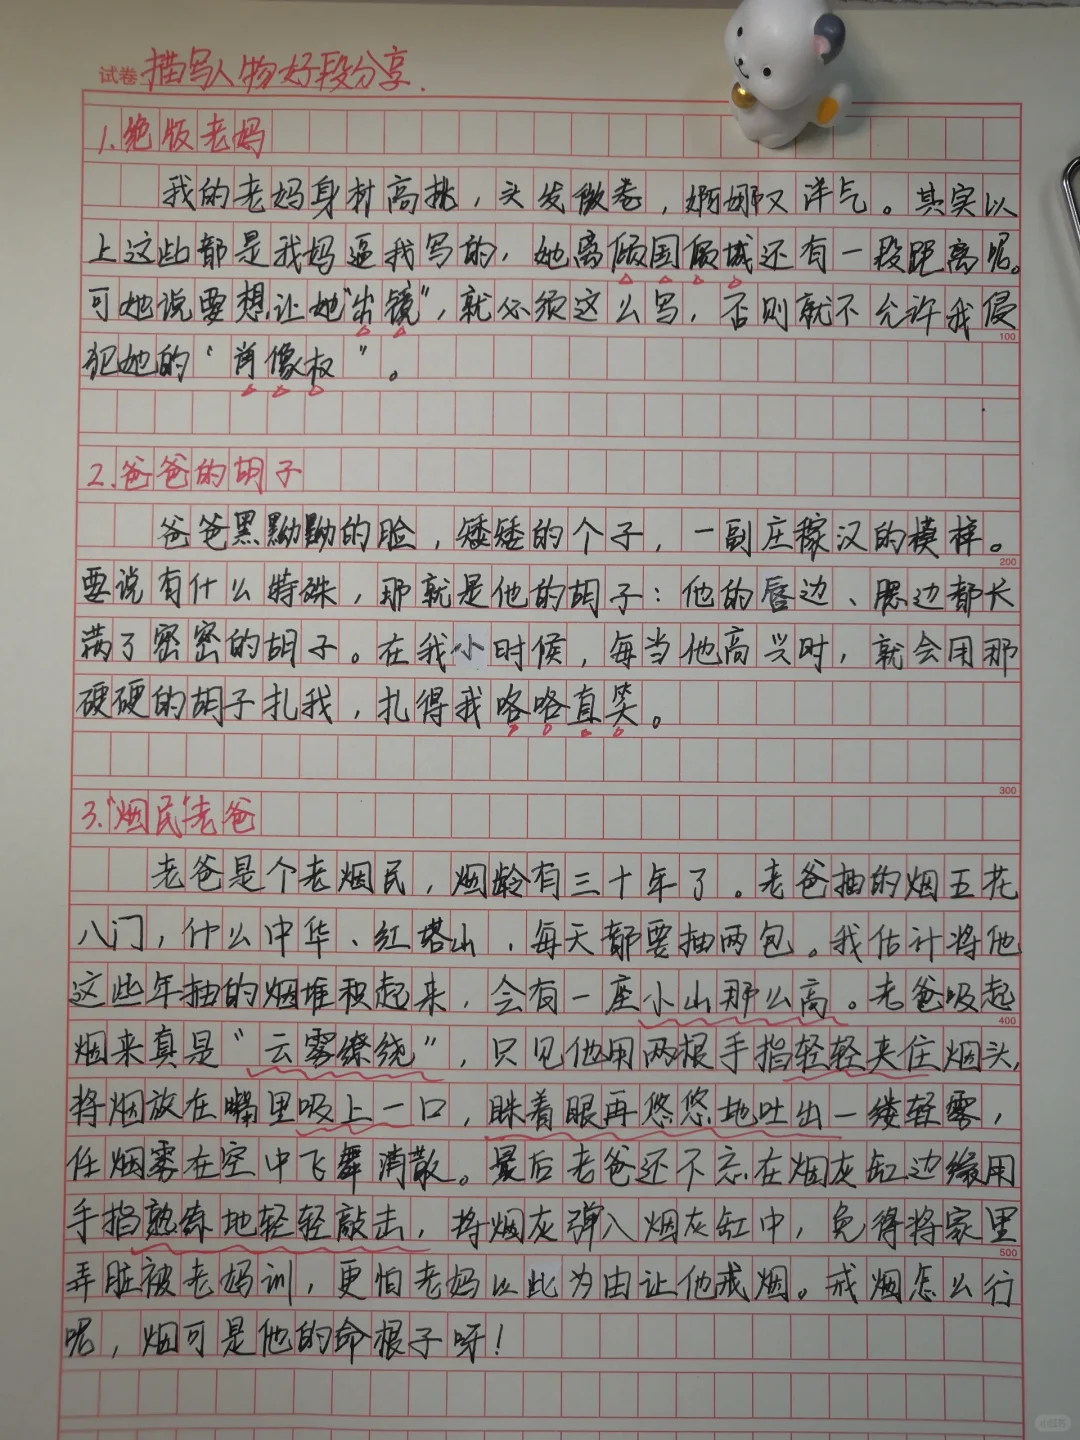 试卷 描写人物好段分享.
1.绝版老妈
我的老妈身材高挑，头发微卷，婀娜又洋气。其实以
上这些都是我妈逼我写的，她离倾国倾城还有一段距离呢。
可她说要想让她“出镜”，就必须这么写，否则就不允许我侵
100
犯她的“肖像权”。
2.爸爸的胡子
爸爸黑黝黝的脸，矮矮的个子，一副庄稼汉的模样。
200
要说有什么特殊，那就是他的胡子：他的唇边、腮边都长
满了密密的胡子。在我小时候，每当他高兴时，就会用那
硬硬的胡子扎我，扎得我咯咯直笑。
300
3.“烟民”老爸
老爸是个老烟民，烟龄有三十年了。老爸抽的烟五花
八门，什么中华、红塔山，每天都要抽两包。我估计将他
这些年抽的烟堆积起来，会有一座小山那么高。老爸吸起
400
烟来真是“云雾缭绕”，只见他用两根手指轻轻夹住烟头，
将烟放在嘴里吸上一口，眯着眼再悠悠地吐出一缕轻雾，
任烟雾在空中飞舞消散。最后老爸还不忘在烟灰缸边缘用
手指熟练地轻轻敲击，将烟灰弹入烟灰缸中，免得将家里
500
弄脏被老妈训，更怕老妈以此为由让他戒烟。戒烟怎么行
呢，烟可是他的命根子呀！
小红书